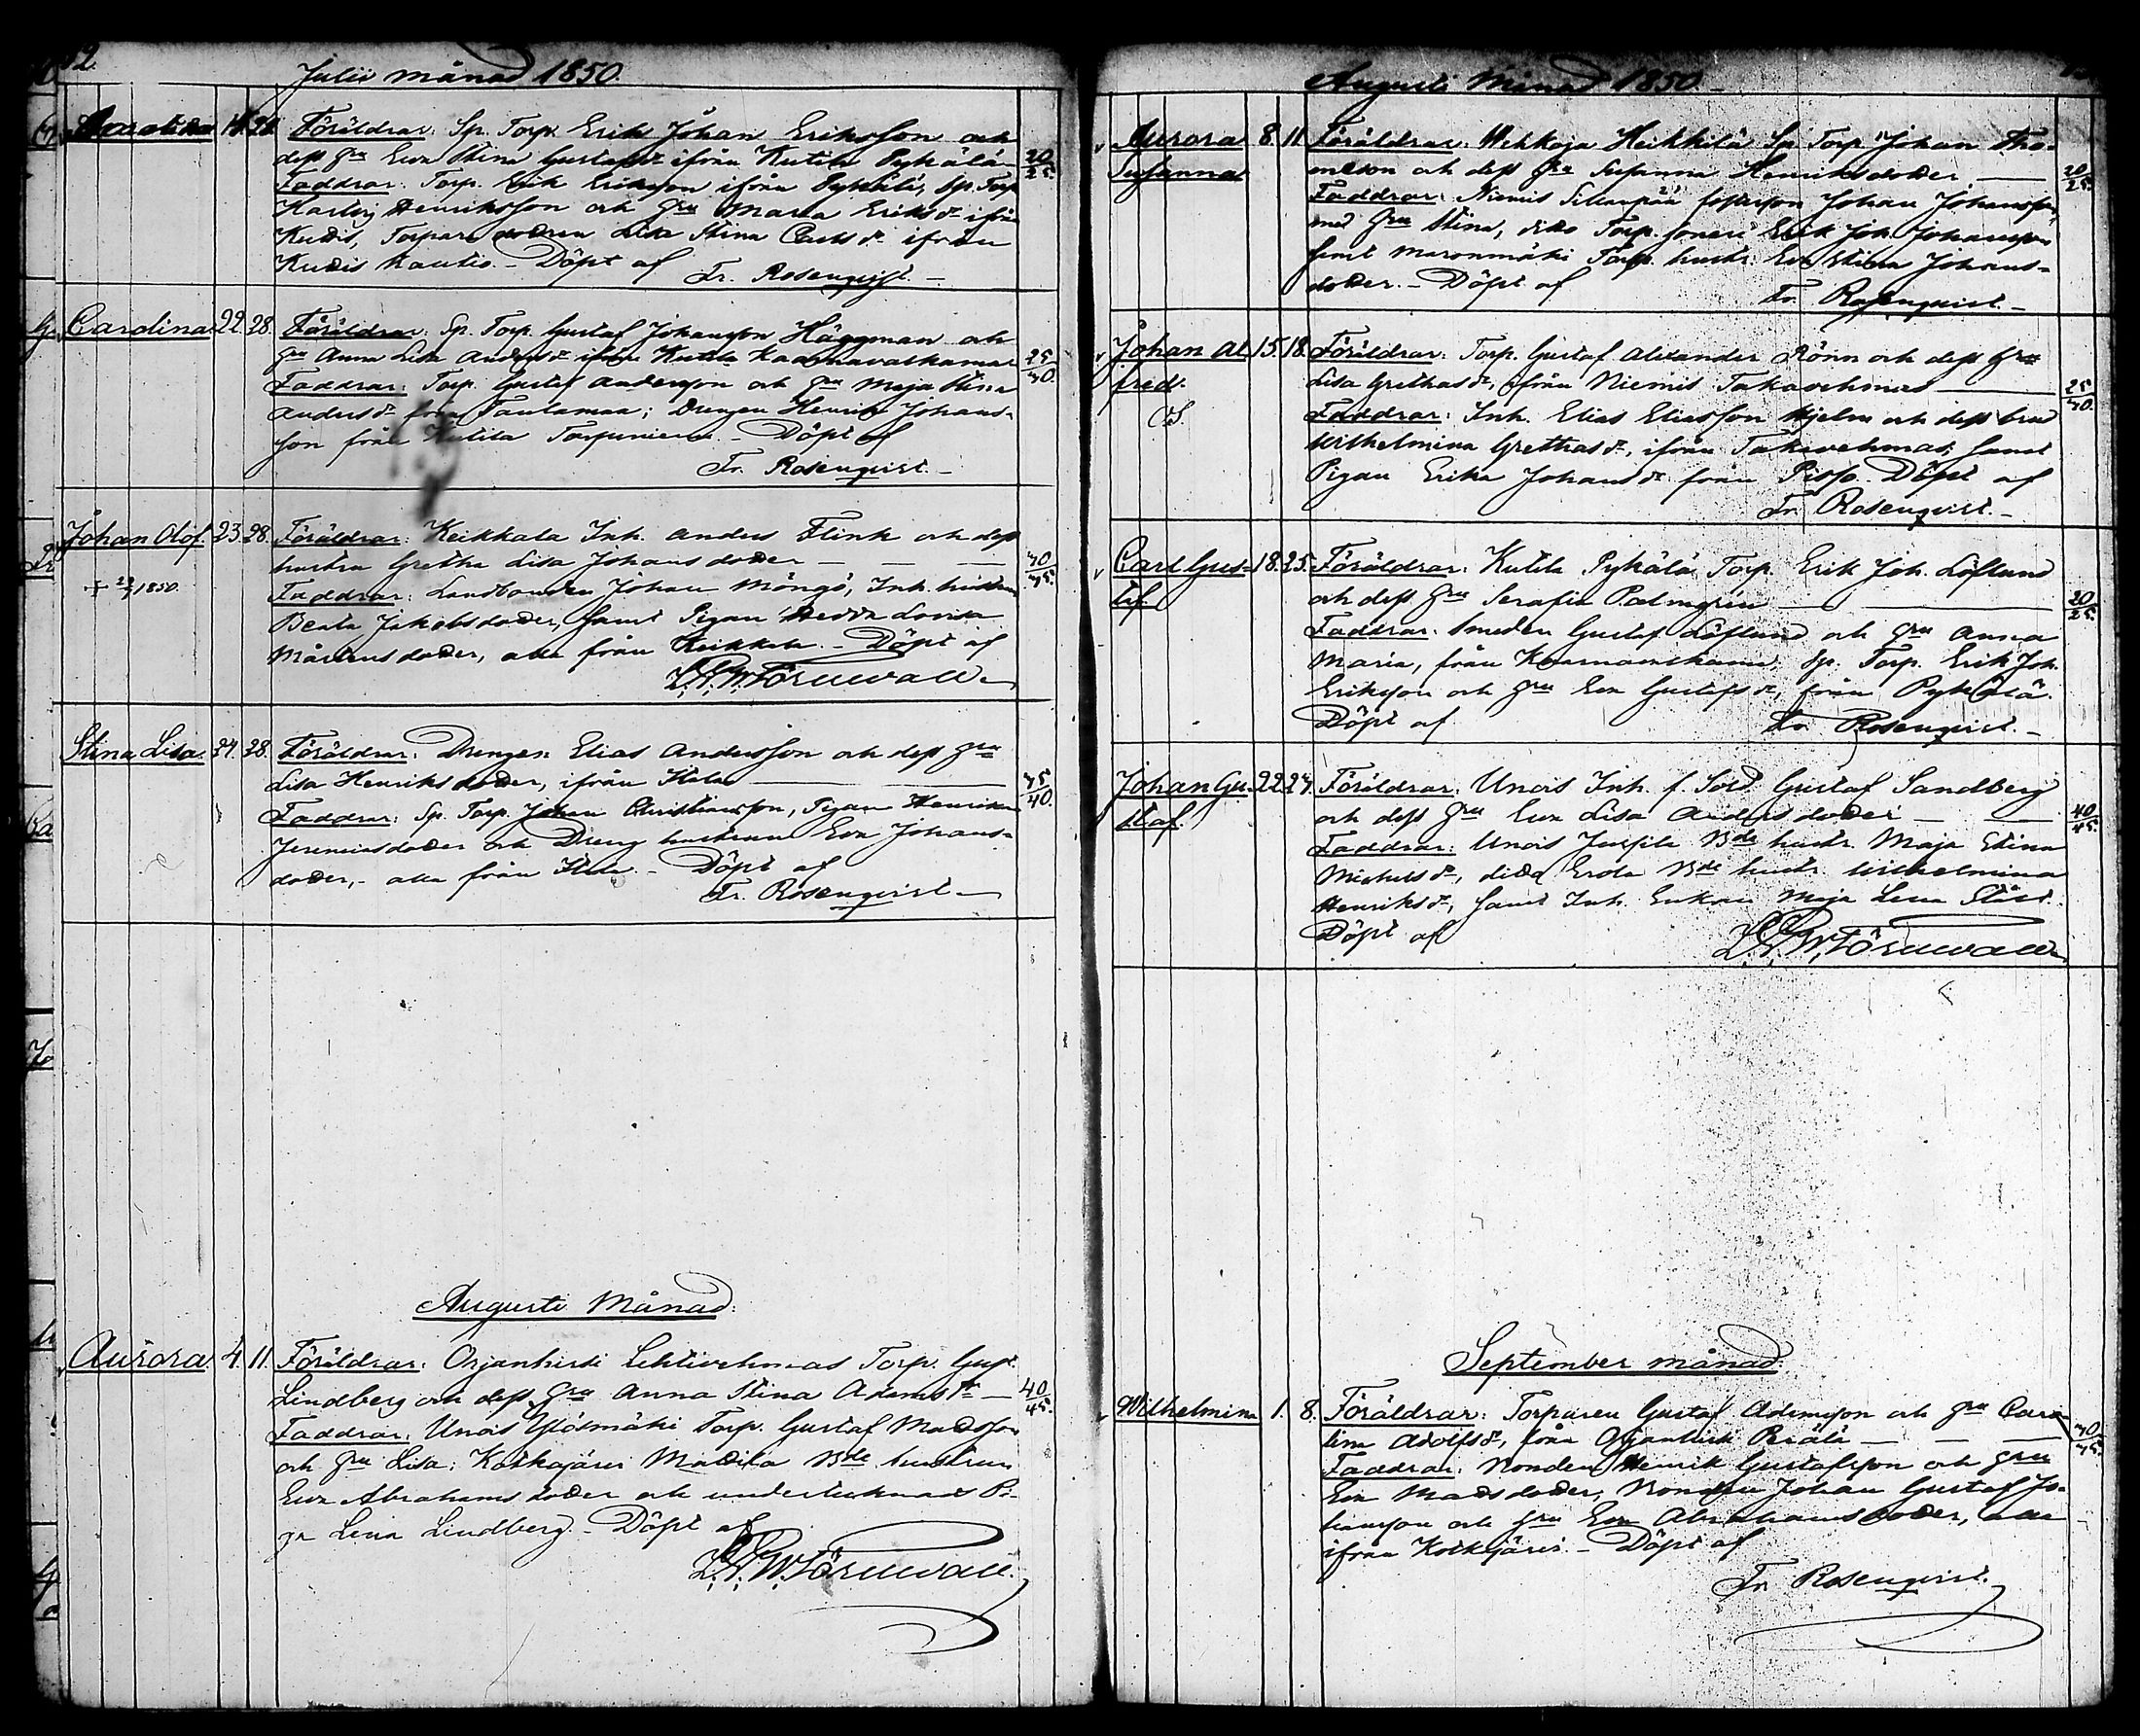 Julii månad 1850.
14. 21. Föräldrar: Sp. Torp. Erik Johan Eriksson och
dess hru Eva Stina Gustafsdr ifrån Kutila Pykälä
20/25.
Faddrar: Torp. Erik Eriksson ifrån Pykälä, Sp. Torp
Henriksson och hru Maria Eriksdr ifrån
Kudis, Torpare Lisa Stina Carlsdr ifrån
Kudis Kautio. – Döpt af Fr. Rosenqvist. –
Carolina 22. 28. Föräldrar: Sp. Torp. Gustaf Johansson Häggman och
hru Anna Lisa Andersdr ifrån Kutila
25/30.
Faddrar: Torp. Gustaf Andersson och hru Maja Stina
Andersdr från Tautamaa; Drengen Henrik Johans-
son från Kutila Torpuniemi. – Döpt af
Fr. Rosenqvist. –
Johan Olof. 23. 28. Föräldrar: Keikkala Inh. Anders Flink och dess
+ 1850.
hustru Gretha Lisa Johansdoder – – –
Faddrar: Landbonden Johan Möngö, Inh. hustrun
Beata Jakobsdoder, samt Pigan Hedda Lovisa
Mårtensdoder, alla från Keikkala. – Döpt af
L. A. W. Törnwall
Stina Lisa. 24. 28. Föräldrar: Drengen Elias Andersson och dess hru
Lisa Henriksdoder, ifrån
Faddrar: Sp. Torp. Johan Christiansson, Pigan Henrika
Jeremiasdoder och Dreng hustrun Eva Johans-
doder, – alla från – Döpt af
Fr. Rosenqvist –
Augusti Månad.
Aurora. 4. 11. Föräldrar: Orjanhirsi Lehtivehmas Torp. Gust.
Lindberg och dess hru Anna Stina Adamsdr –
40/45.
Faddrar: Unois Torp. Gustaf Madsson
och hru Lisa; Koskajärvi Madila Bde hustrun
Eva Abrahamsdoder och undertecknads Pi-
ga Lena Lindberg. – Döpt af
L. A. W. Törnwall.
Augusti Månad 1850. –
Aurora 8. 11 Föräldrar: Heikkilä Sp Torp. Johan Tho-
Susanna
masson och dess hru Susanna Henriksdoder –
20/25.
Faddrar: Niemis Sillanpää Johan Johansson
med hru Stina, dito Torp. sonen Erik Joh. Johansson
samt Maronmäki Torp. hustr. Eva Stina Johans-
doder. – Döpt af Fr. Rosenqvist. –
Johan Al- 15. 18. Föräldrar: Torp. Gustaf Alexander Rönn och dess hru
fred.
Lisa Grethasdr, ifrån Niemis Takavehmas
25/30.
Faddrar: Inh. Elias Eliasson Hjelm och dess brud
Wilhelmina Grethasdr, ifrån Takavehmas, samt
Pigan Erika Johansdr från Döpt af
Fr. Rosenqvist. –
Carl Gus- 18. 25. Föräldrar: Kutila Pykälä Torp. Erik Joh. Löflund
taf
och dess hru Serafia Palmgrén
20/25.
Faddrar: Smeden Gustaf Löflund och hru Anna
Maria, från Sp. Torp. Erik Joh.
Eriksson och hru Eva Gustafsdr, från Pykälä.
Döpt af Fr. Rosenqvist. –
Johan Gu- 22. 24. Föräldrar: Unois Inh. f. Sold. Gustaf Sandberg
staf.
och dess hru Eva Lisa Andersdoder –
40/45.
Faddrar: Unois Jussila Bde hustr. Maja Stina
Michelsdr, dito Erola Bde hustr. Wilhelmina
Henriksdr, samt Inh. Enkan Maja Lena
Döpt af L. A. W. Törnwall
September månad.
Wilhelmina 1. 8. Föräldrar: Torparen Gustaf Adamsson och hru Caro-
lina Adolfsdr, från Orjanhirsi – –
Faddrar: Bonden Henrik Gustafsson och hru
Eva Madsdoder, Bonden Johan Gustaf Jo-
hansson och hru Eva Abrahamsdoder, alla
ifrån Koskajärvi – Döpt af
Fr. Rosenqvist.